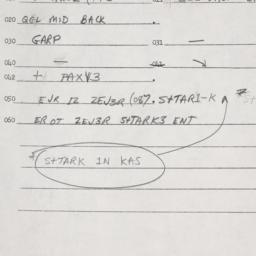 020 GEL MID BACK .
030 GARP 031 —
040 —
042 + PAXV3 .
050 EJR IZ ZEJ3R (08%. S+TAR1-K
060 EROT ZEJ3R S+TARK3 ENT
S+TARK IN KAS